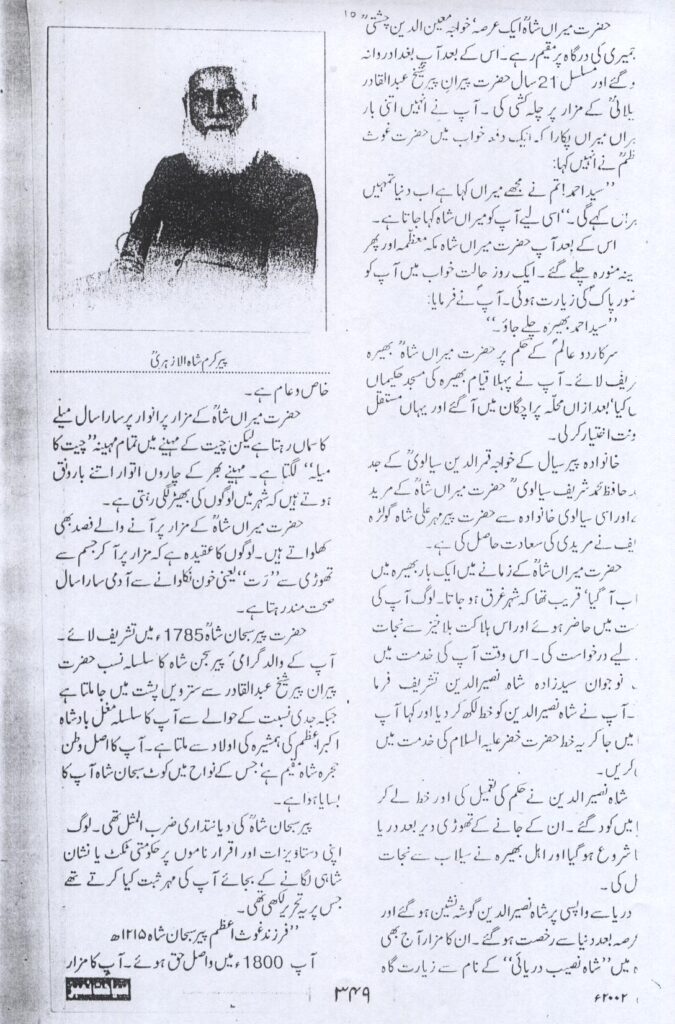 حضرت میراں شاہؒ ایک عرصہ ’خواجہ معین الدین چشتیؒ
جمیری کی درگاہ پر مقیم رہے۔ اس کے بعد آپ بغداد روانہ
و گئے اور مسلسل 21 سال حضرت پیران پیر شیخ عبدالقادر
یلانیؒ کے مزار پر چلہ کشی کی۔ آپ نے انہیں اتنی بار
یراں میراں پکارا کہ ایک دفعہ خواب میں حضرت غوث
ظمؒ نے انہیں کہا:
’’سید احمد! تم نے مجھے میراں کہا ہے اب دنیا تمہیں
یراں کہے گی۔‘‘ اسی لیے آپ کو میراں شاہ کہا جاتا ہے۔
اس کے بعد آپ حضرت میراں شاہ مکہ معظمہ اور پھر
ینہ منورہ چلے گئے۔ ایک روز حالت خواب میں آپ کو
ضور پاک کی زیارت ہوئی۔ آپ نے فرمایا:
’’سید احمد بھیرہ چلے جاؤ۔‘‘
سرکار دو عالمؐ کے حکم پر حضرت میراں شاہؒ بھیرہ
ریف لائے۔ آپ نے پہلا قیام بھیرہ کی مسجد حکیماں
ں کیا‘ بعد ازاں محلہ پراچگان میں آ گئے اور یہاں مستقل
ونت اختیار کر لی۔
خانوادہ پیر سیال کے خواجہ قمر الدین سیالویؒ کے جد
د حافظ محمد شریف سیالویؒ حضرت میراں شاہؒ کے مرید
ے اور اسی سیالوی خانوادہ سے حضرت پیر مہر علی شاہ گولڑہ
یف نے مریدی کی سعادت حاصل کی ہے۔
حضرت میراں شاہؒ کے زمانے میں ایک بار بھیرہ میں
اب آ گیا‘ قریب تھا کہ شہر غرق ہو جاتا۔ لوگ آپ کی
ت میں حاضر ہوئے اور اس ہلاکت بلاخیز سے نجات
لیے درخواست کی۔ اس وقت آپ کی خدمت میں
نوجوان سید زادہ شاہ نصیر الدین تشریف فرما
۔ آپ نے شاہ نصیر الدین کو خط لکھ کر دیا اور کہا آپ
میں جا کر یہ خط حضرت خضر علیہ السلام کی خدمت میں
کریں۔
شاہ نصیر الدین نے حکم کی تعمیل کی اور خط لے کر
ا میں کود گئے۔ ان کے جانے کے تھوڑی دیر بعد دریا
ا شروع ہو گیا اور اہل بھیرہ نے سیلاب سے نجات
ل کی۔
دریا سے واپسی پر شاہ نصیر الدین گوشہ نشین ہو گئے اور
رصہ بعد دنیا سے رخصت ہو گئے۔ ان کا مزار آج بھی
ہ میں ’’شاہ نصیب دریائی‘‘ کے نام سے زیارت گاہ
پیر کرم شاہ الازہریؒ
خاص و عام ہے۔
حضرت میراں شاہؒ کے مزار پر انوار پر سارا سال میلے
کا سماں رہتا ہے لیکن چیت کے مہینے میں تمام مہینہ ’’چیت کا
میلہ‘‘ لگتا ہے۔ مہینے بھر کے چاروں اتوار اتنے بارونق
ہوتے ہیں کہ شہر میں لوگوں کی بھیڑ لگی رہتی ہے۔
حضرت میراں شاہؒ کے مزار پر آنے والے فصد بھی
کھلواتے ہیں۔ لوگوں کا عقیدہ ہے کہ مزار پر آ کر جسم سے
تھوڑی سے ’’رَت‘‘ یعنی خون نکلوانے سے آدمی سارا سال
صحت مند رہتا ہے۔
حضرت پیر سبحان شاہؒ 1785ء میں تشریف لائے۔
آپ کے والد گرامی‘ پیر بجن شاہ کا سلسلہ نسب حضرت
پیران پیر شیخ عبدالقادر سے سترویں پشت میں جا ملتا ہے
جبکہ جدی نسبت کے حوالے سے آپ کا سلسلہ مغل بادشاہ
اکبر اعظم کی ہمشیرہ کی اولاد سے ملتا ہے۔ آپ کا اصل وطن
حجرہ شاہ مقیم ہے‘ جس کے نواح میں کوٹ سبحان شاہ آپ کا
بسایا ہوا ہے۔
پیر سبحان شاہؒ کی دیانتداری ضرب المثل تھی۔ لوگ
اپنی دستاویزات اور اقرار ناموں پر حکومتی ٹکٹ یا نشان
شاہی لگانے کے بجائے آپ کی مہر ثبت کیا کرتے تھے
جس پر یہ تحریر لکھی تھی۔
’’فرزند غوث اعظم پیر سبحان شاہ ۱۲۱۵ھ
آپ 1800ء میں واصل حق ہوئے۔ آپ کا مزار
۳۴۹
۲۰۰۲ء